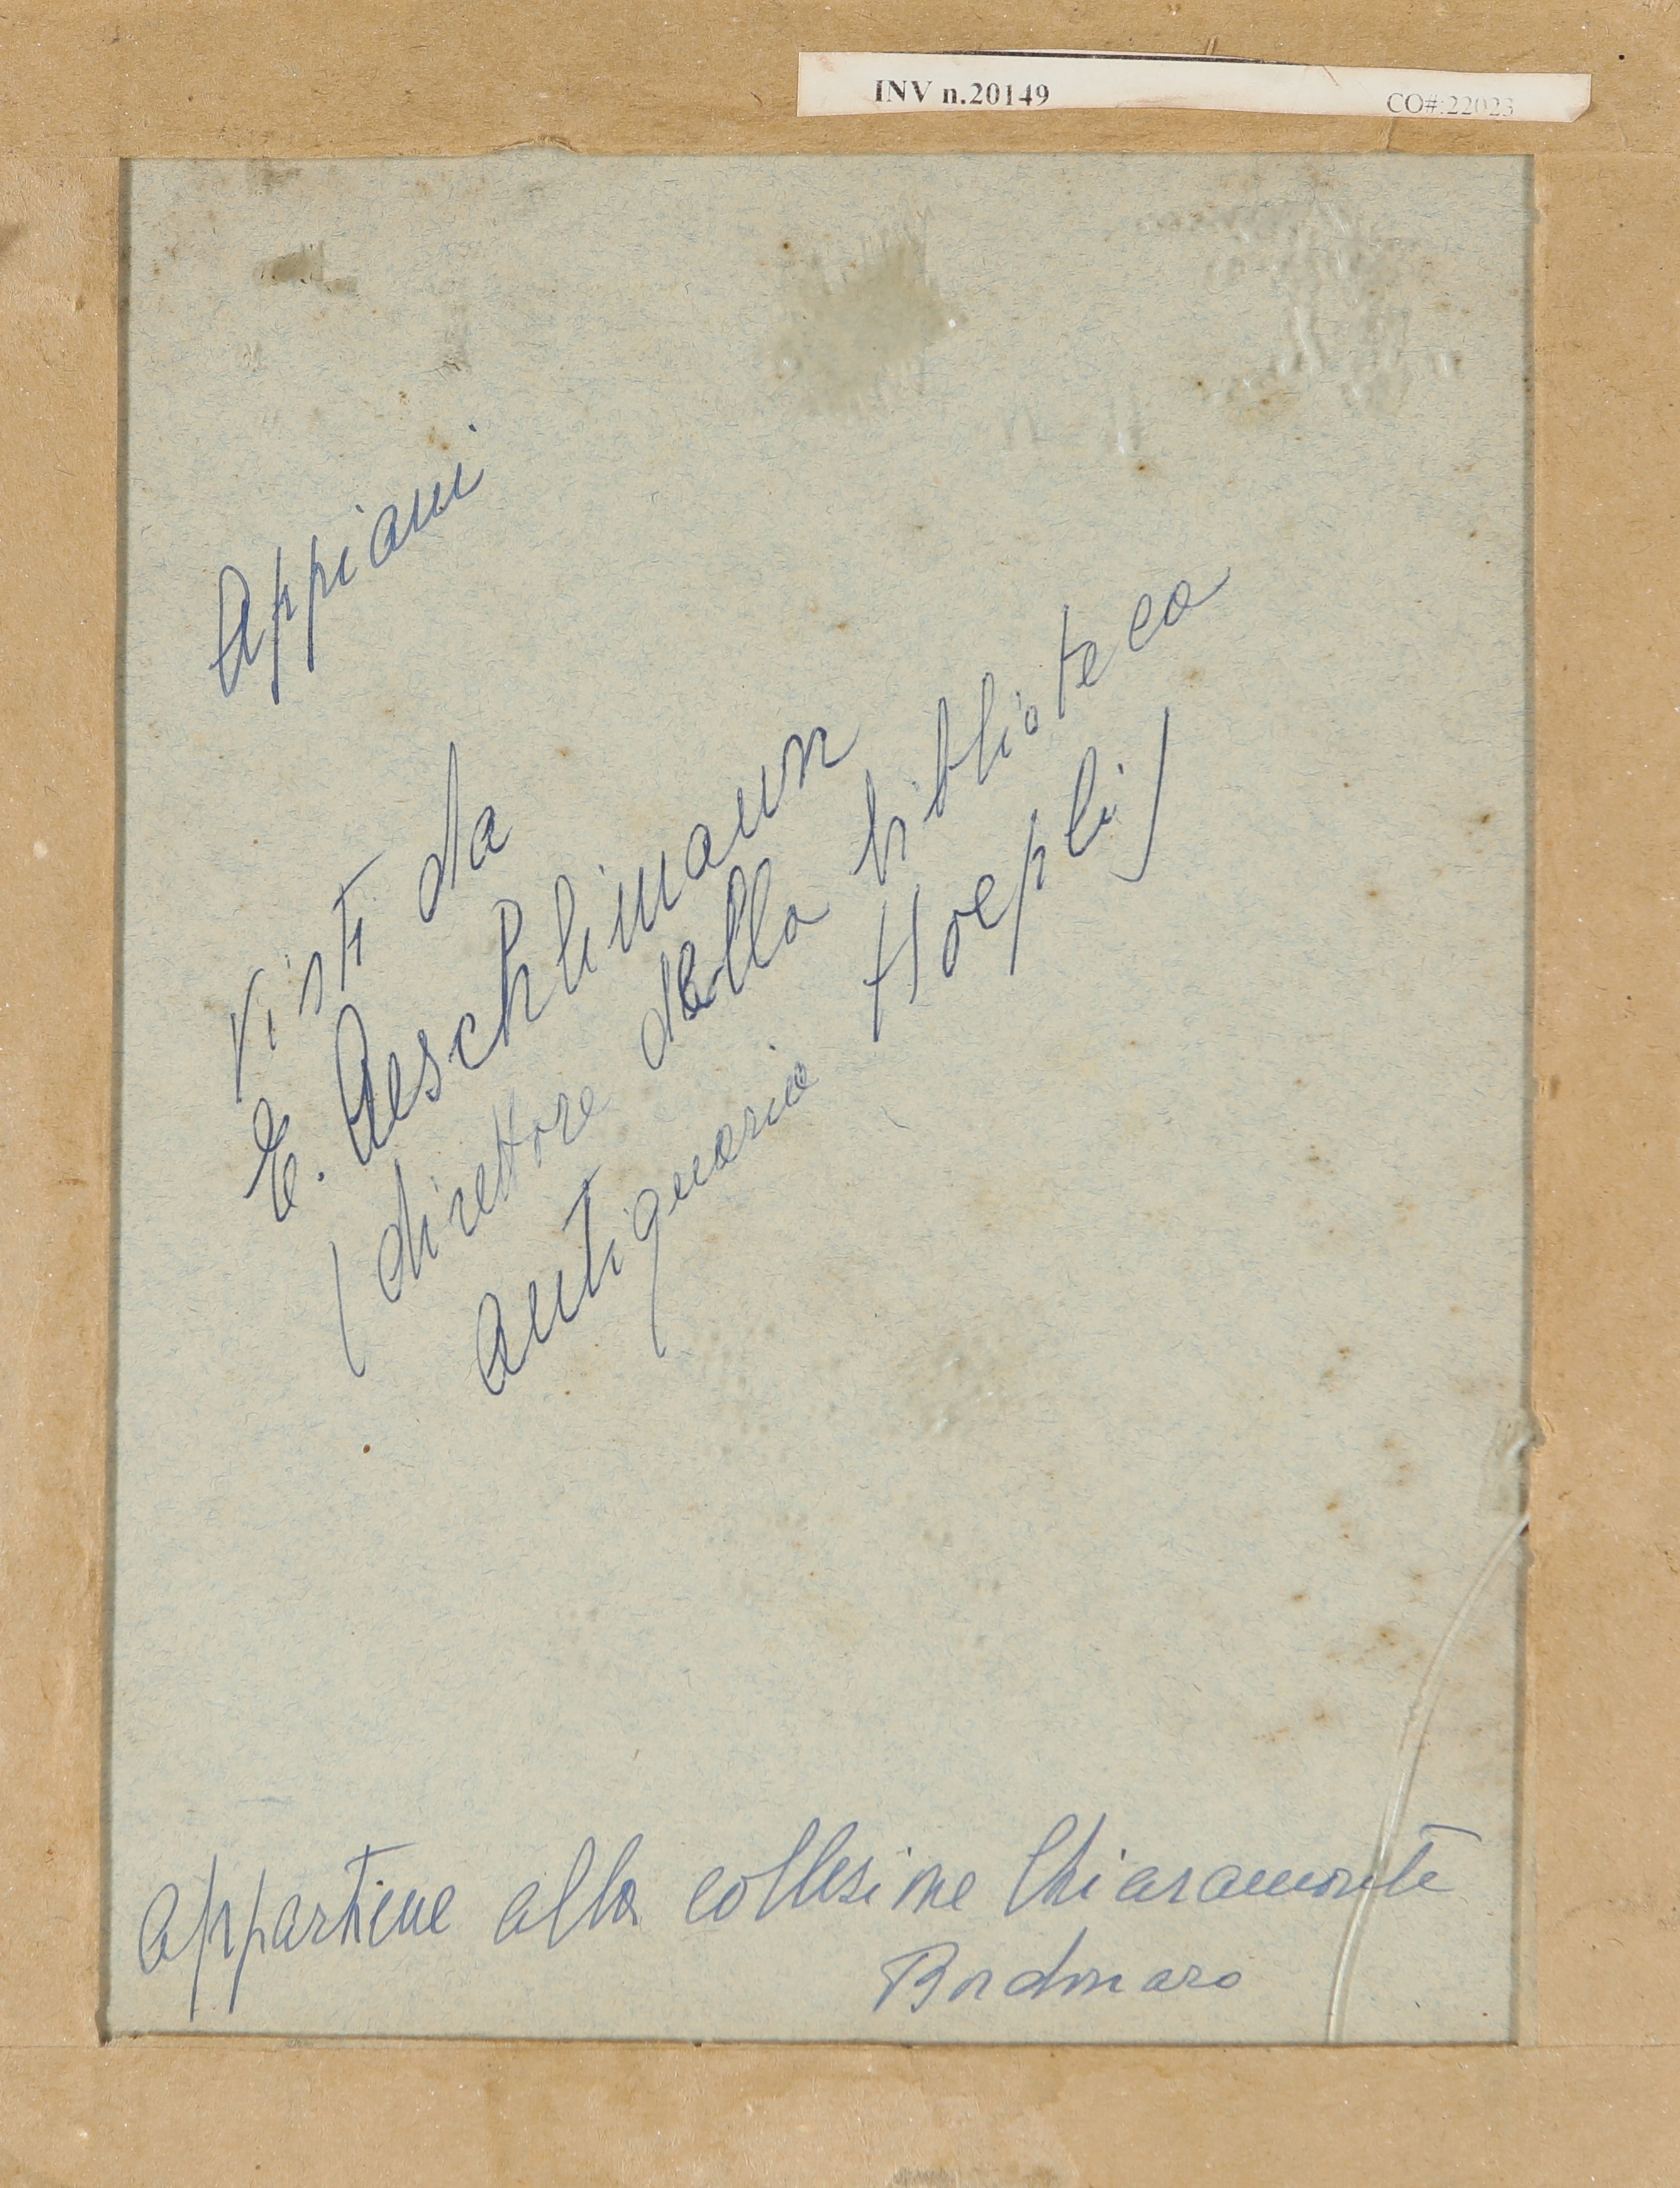 INV n.20149 CO#:22023
Appiani
Visti da
E. Aeschlimann
(direttore della biblioteca
antiquaria Hoepli)
appartiene alla collesione Chiaramonte
Bordonaro